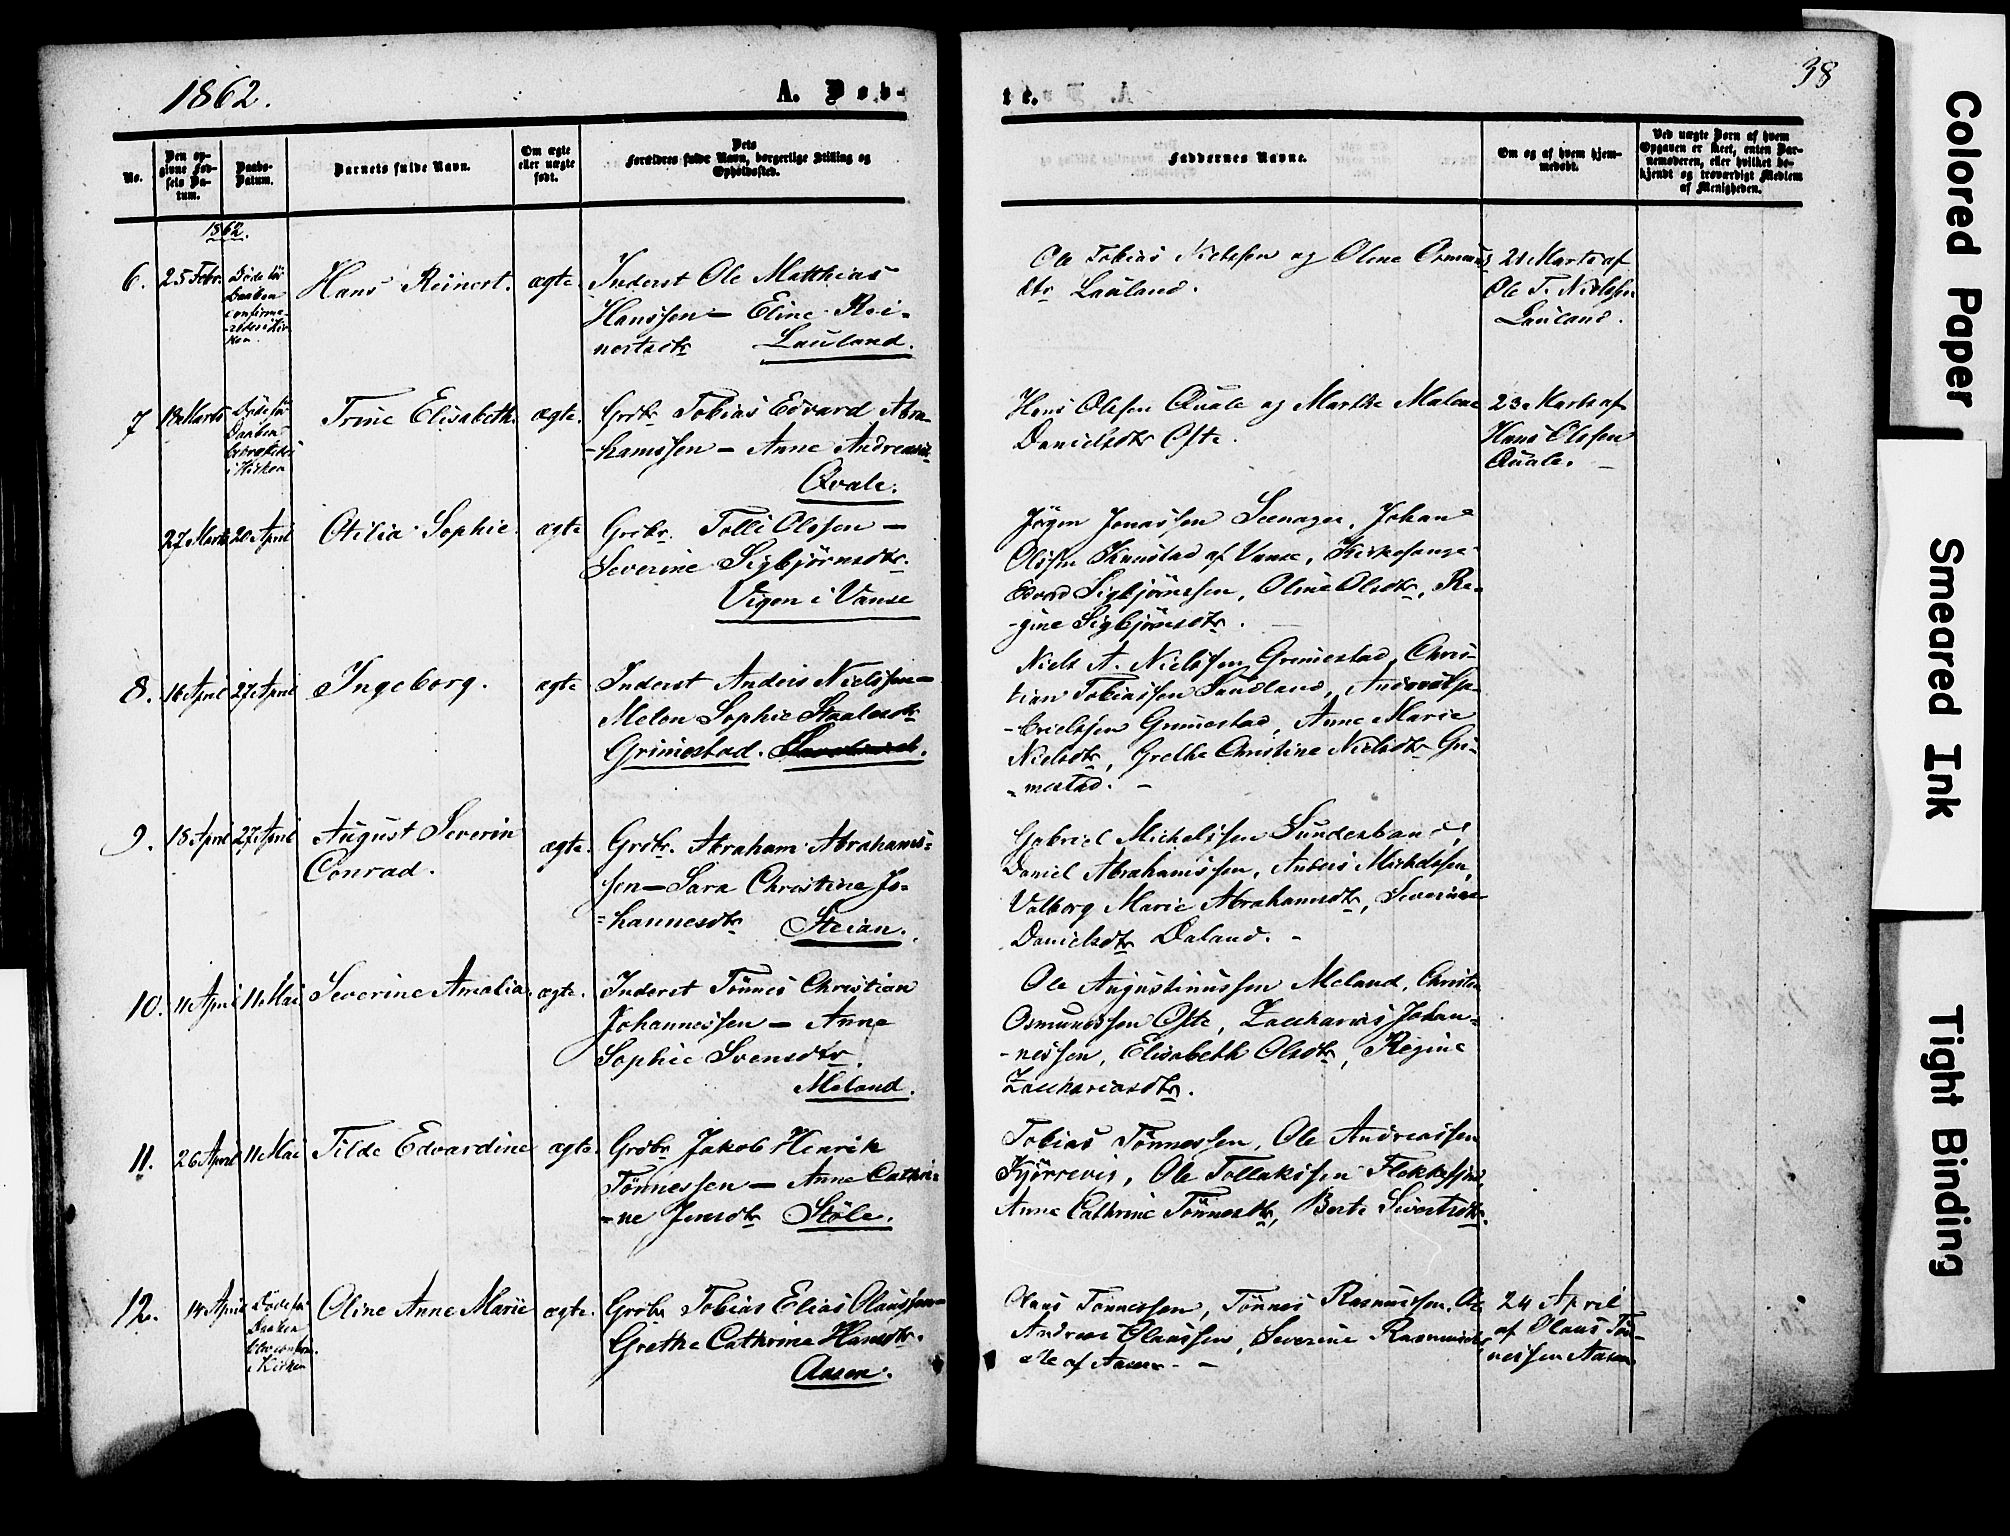 1862.
A. Døb-
te.
38
No.
Den op-
givne Fød-
sels Da-
tum.
Daabs-
Datum.
Barnets fulde Navn.
Om ægte
eller uægte
født.
Dets
Forældres fulde Navn, borgerlige Stilling og
Opholdssted.
Faddernes Navne.
Om og af hvem hjem-
medøbt.
Ved uægte Børn af hvem
Opgaven er skeet, enten Bar-
nemoderen, eller hvilket be-
kjendt og troværdigt Medlem
af Menigheden.
1862.
6. 25 Febr.
Døde før
Daaben
confirme-
redes i Kir-
ken.
Hans Reinert. ægte.
Inderst Ole Matthias
Hanssen - Eline Rei-
nertsdtr Lauland.
Ole Tobias Nielssen og Olene Osmunds
dtr Lauland.
21 Marts af
Ole T. Nielssen
Lauland.
7 13 Marts
Døde før
Daaben
i Kirken
Trine Elisabeth. ægte.
Grdbr Tobias Edvard Abra-
-hamssen - Anne Andreasdtr
Qvale.
Hans Olssen Quale og Marthe Malene
Danielsdtr Ofte.
23 Marts af
Hans Olssen
Quale. -
27 Marts 20 April Otilia Sophie. ægte
Grdbr. Tolli Olssen -
Severine Sigbjörnsdtr.
Vigen i Vanse
Jörgen Jonassen Seenager, Johan
Olssen af Vanse, Kirkesanger
Edvard Sigbjörnssen, Oline Olsdtr, Re-
-gine Sigbjörnsdtr. -
8. 16 April 27 April Ingeborg. ægte
Inderst Anders Nielssen -
Melen Sophie Staalesdtr
Grimestad.
Niels A. Nielssen Grimestad, Chris-
tian Tobiassen Sandland,
-Nielssen Grimestad, Anne Marie
Nielsdtr, Grethe Christine Nielsdtr Gri-
-mestad. -
9. 18 April 27 April
August Severin
Conrad.
ægte.
Grdbr. Abraham Abrahams-
sen - Sara Christine Jo-
=hannesdtr Steian.
Gabriel Michelssen Sundesband,
Daniel Abrahamssen, Anders Michelssen,
Valborg Marie Abrahamsdtr, Severine
Danielsdtr Daland. -
10. 11 April 11 Mai Severine Amalia. ægte.
Inderst Tönnes Christian
Johannessen - Anne
Sophie Svensdtr.
Meland.
Ole Augustinussen Meland, Christen
Osmundssen Ofte, Zacharias Johan-
-nessen, Elisabeth Olsdtr, Regine
Zachariasdtr.
11. 26 April 11 Mai Tilde Edvardine ægte.
Grdbr Jakob Henrik
Tönnessen - Anne Cathri-
-ne Jensdtr Stöle.
Tobias Tönnessen, Ole Andreassen
Kjörrevig, Ole Tollakssen
Anne Cathrine Tönnesdtr, Berte Sivertsdtr.
12. 14 April
Døde før
Daaben
blev confirm.
i Kirken
Oline Anne Marie ægte.
Grdbr Tobias Elias Olaussen -
Grethe Cathrine Hansdtr.
Aasen.
Olaus Tönnessen, Tönnes Rasmussen, Ole
Andreas Olaussen, Severine Rasmusdtr,
alle af Aasen. -
24 April
af Olaus Tön-
nessen Aasen
Colored Paper
Smeared Ink
Tight Binding